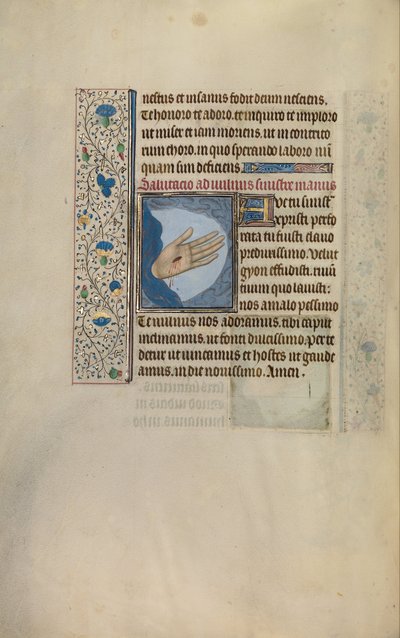 nescius et insanus fodit deum nesciens.
Te honoro te adoro. te inquiro te imploro
ut miser et iam moriens. ut in contrito
rum choro. in quo sperando laboro nū
quam sim deficiens
Salutacio ad vulnus sinistre manus
Aue tu sinist̄
dextri perfo
rata tu fuisti clauo
predurissimo. Velut
gyon effudisti. riuū
tuum quo lauisti:
nos a malo pessimo
Te vulnus nos adoramus. tibi caput
inclinamus. ut fonti dulcissimo. per te
detur ut vincamus et hostes ut gaude
amus. in die nouissimo. Amen.